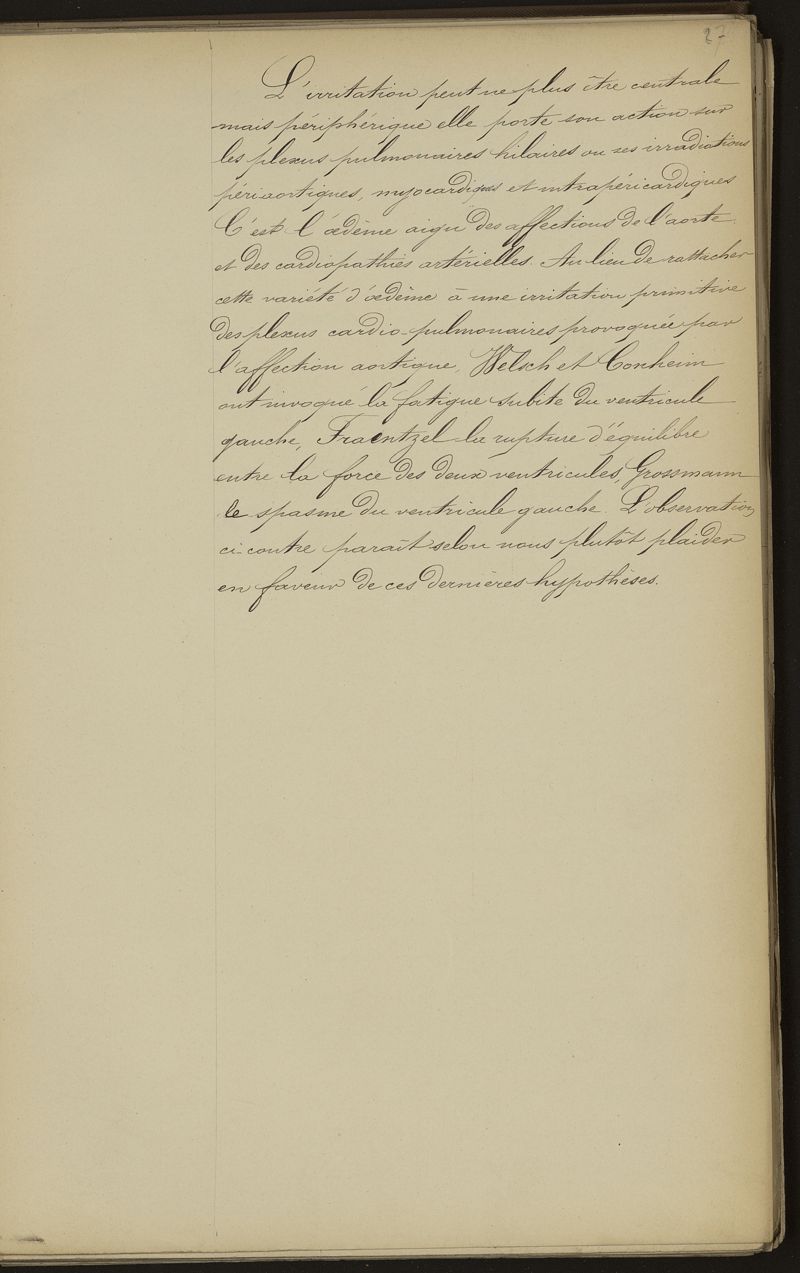 27
L'irritation peut ne plus être centrale
mais périphérique elle porte son action sur
les plexus pulmonaires hilaires ou ses irradiations
périaortiques, myocardiques et intrapéricardiques
C'est l'œdème aigu des affections de l'aorte
et des cardiopathies artérielles. Au lieu de rattacher
cette variété d'œdème à une irritation primitive
des plexus cardio-pulmonaires provoquée par
l'affection aortique, Welsch et Conheim
ont invoqué la fatigue subite du ventricule
gauche, Fraentzel la rupture d'équilibre
entre la force des deux ventricules, Grossmann
le spasme du ventricule gauche. L'observation
ci-contre paraît selon nous plutôt plaider
en faveur de ces dernières hypothèses.